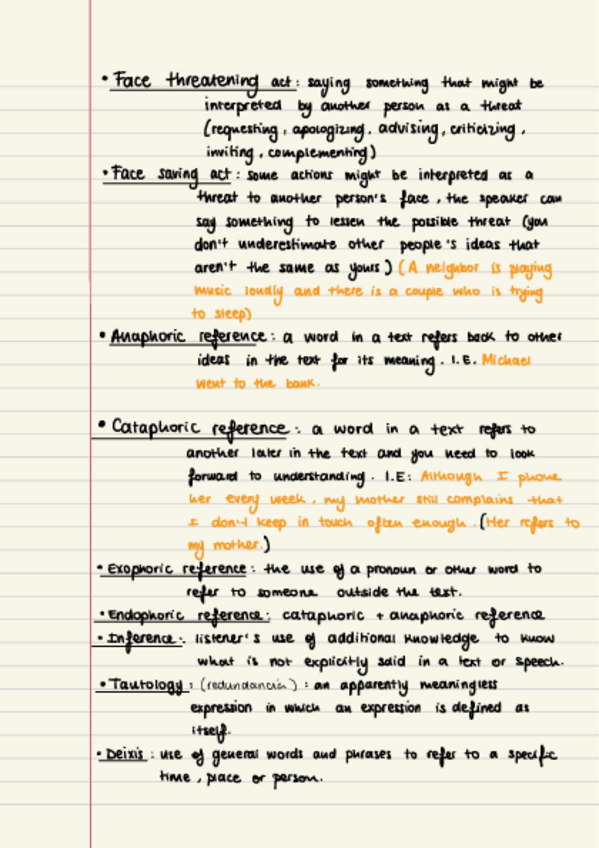 • Face threatening act: saying something that might be
interpreted by another person as a threat
(requesting, apologizing, advising, criticizing,
inviting, complementing)
• Face saving act: some actions might be interpreted as a
threat to another person's face, the speaker can
say something to lessen the possible threat (you
don't underestimate other people's ideas that
aren't the same as yours) (A neighbor is playing
music loudly and there is a couple who is trying
to sleep)
• Anaphoric reference: a word in a text refers back to other
ideas in the text for its meaning. I.E. Michael
went to the bank.
• Cataphoric reference: a word in a text refers to
another later in the text and you need to look
forward to understanding. I.E: Although I phone
her every week, my mother still complains that
I don't keep in touch often enough. (Her refers to
my mother.)
• Exophoric reference: the use of a pronoun or other word to
refer to someone outside the text.
• Endophoric reference: cataphoric + anaphoric reference
• Inference: listener's use of additional knowledge to know
what is not explicitly said in a text or speech.
• Tautology: (redundancia): an apparently meaningless
expression in which an expression is defined as
itself.
• Deixis: use of general words and phrases to refer to a specific
time, place or person.